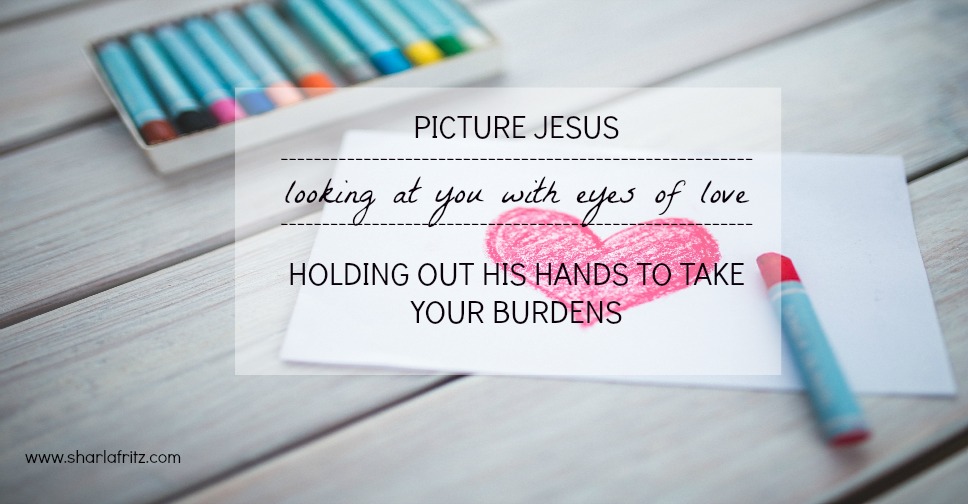 PICTURE JESUS
looking at you with eyes of love
HOLDING OUT HIS HANDS TO TAKE
YOUR BURDENS
www.sharlafritz.com